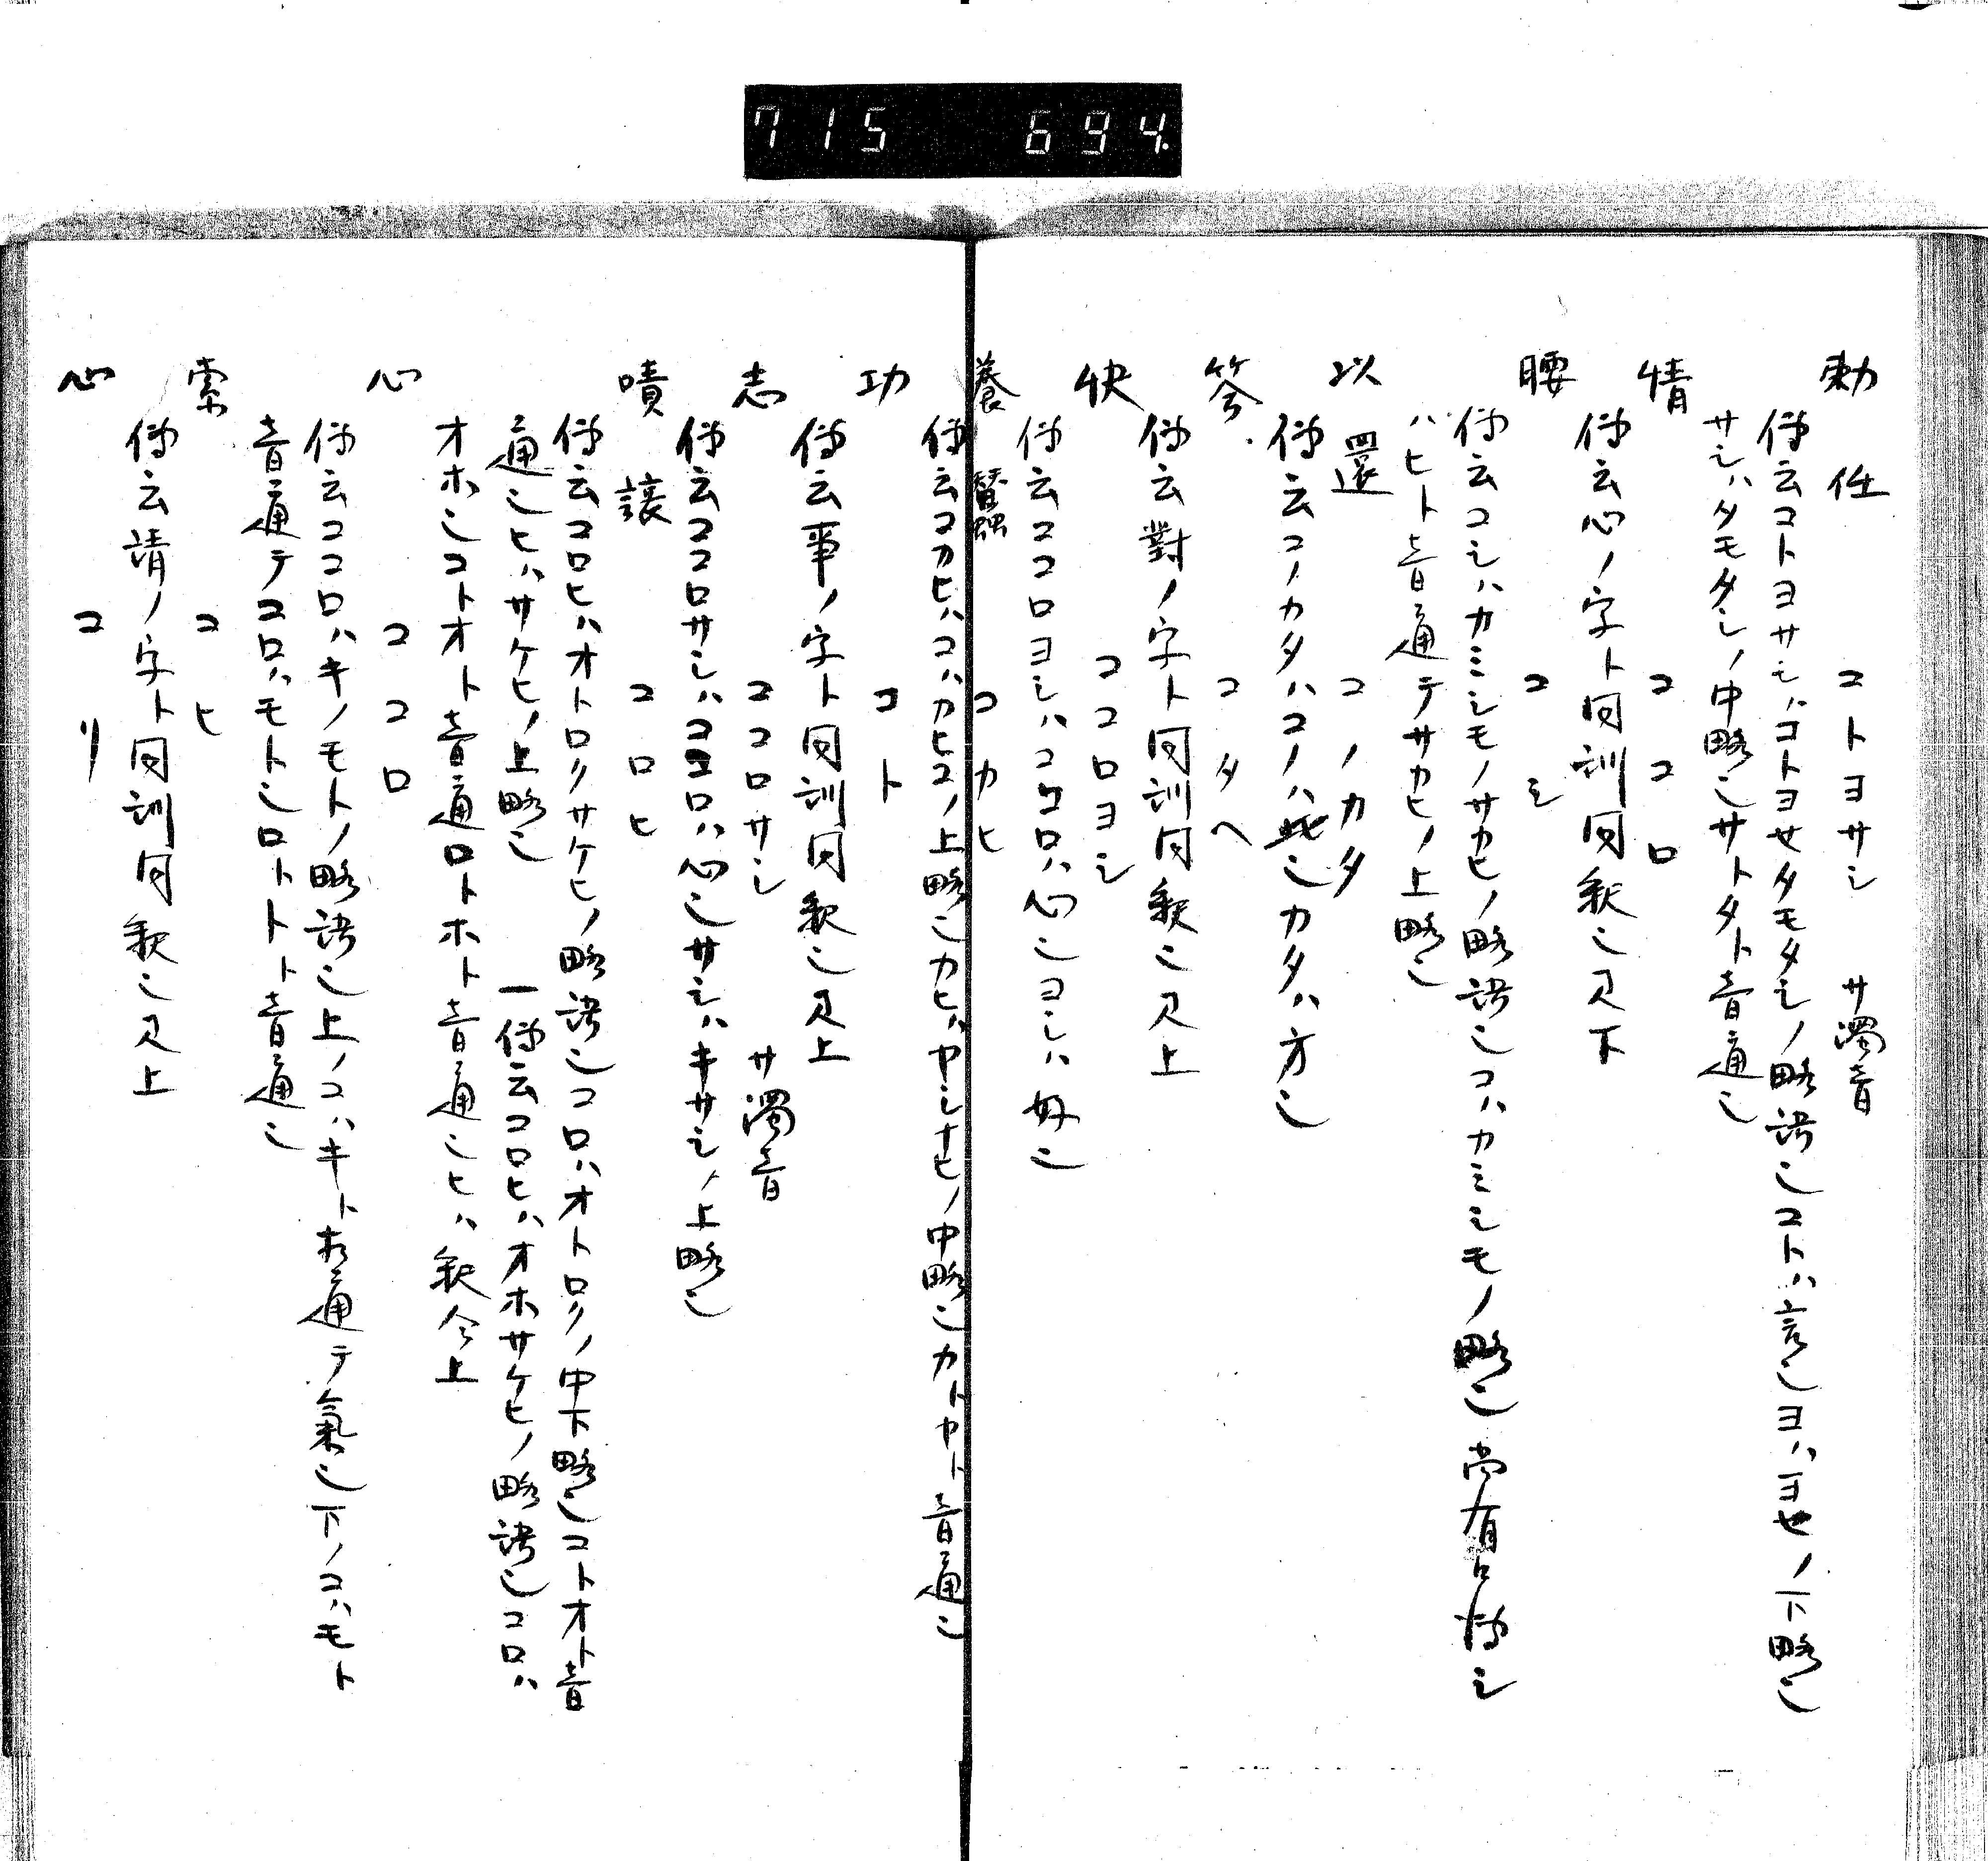 715 694.
勅任 コトヨサシ サ濁音
傳云コトヨサシハコトヨサタモタシノ略語也コトハ言也ヨハヨせノ下略也
サシハタモタシノ中略也サトタト音通也
情 ココロ
傳云心ノ字ト同訓同釈也見下
腰 コシ
傳云コシハカミシモノサカヒノ略語也コハカミシモノ略也尚有口傳シ
ハヒト音通テサカヒノ上略也
以還 コノカタ
傳云コノカタハコノハ此也カタハ方也
答 コタヘ
傳云對ノ字ト同訓同釈也見上
快 ココロヨシ
傳云ココロヨシハココロハ心也ヨシハ好也
養蠶 コカヒ
傳云コカヒハコハカヒコノ上略也カヒハヤシナヒノ中略也カトヤト音通也
功 コト
傳云事ノ字ト同訓同釈也見上
志 ココロサシ サ濁音
傳云ココロサシハココロハ心也サシハキサシノ上略也
嘖讓 コロヒ
傳云コロヒハオトロノサケヒノ略語也コロハオトロノノ中下略也コトオト音
通也ヒハサケヒノ上略也 一傳云コロヒハオホサケヒノ略語也コロハ
オホ也コトオト音通ロトホト音通也ヒハ釈令上
心 ココロ
傳云ココロハキノモトノ略語也上ノコハキト相通テ氣也下ノコハモト
音通テコロハモト也ロトトト音通也
索 コヒ
傳云請ノ字ト同訓同釈也見上
心 コリ